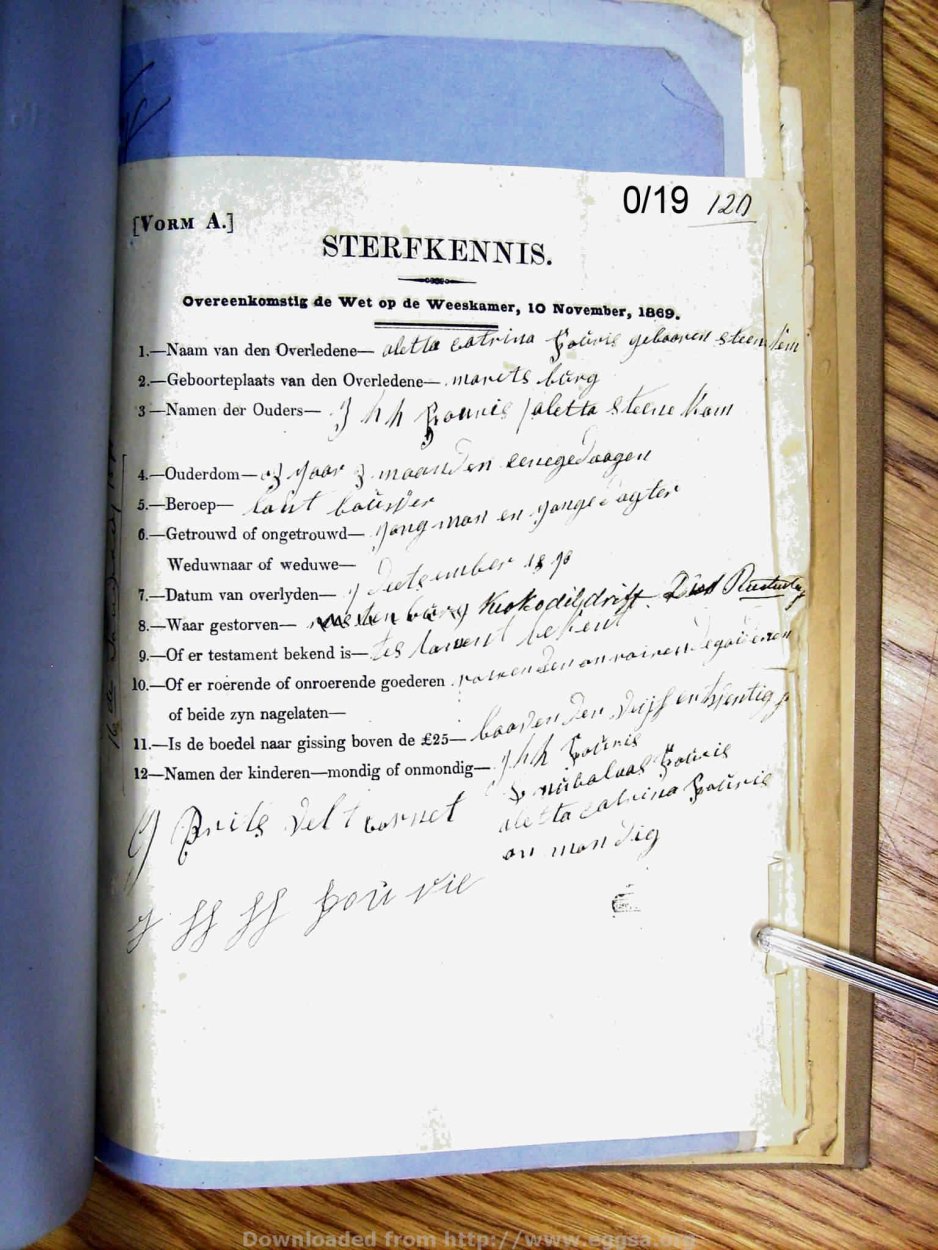 0/19 120
[VORM A.]
STERFKENNIS.
Overeenkomstig de Wet op de Weeskamer, 10 November, 1869.
1.—Naam van den Overledene— aletta catrina Fourie gebooren steen kem
2.—Geboorteplaats van den Overledene— marets burg
3—Namen der Ouders— J h h Fourie / aletta steene kam
4.—Ouderdom— jaar 3 maanden en eenege daagen
5.—Beroep— lant bouwer
6.—Getrouwd of ongetrouwd— jong man en jonge dogter
Weduwnaar of weduwe—
7.—Datum van overlyden— 7 Deetsember 18
8.—Waar gestorven— Krokodildrift Dist Rustenburg
9.—Of er testament bekend is— tes tament bekent
10.—Of er roerende of onroerende goederen
of beide zyn nagelaten—
11.—Is de boedel naar gissing boven de £25— en twentig
12—Namen der kinderen—mondig of onmondig— J h h Fourie
Fourie
aletta catrina Fourie
on mondig
Brits velt cornet
Fourie
Downloaded from http://www.eggsa.org